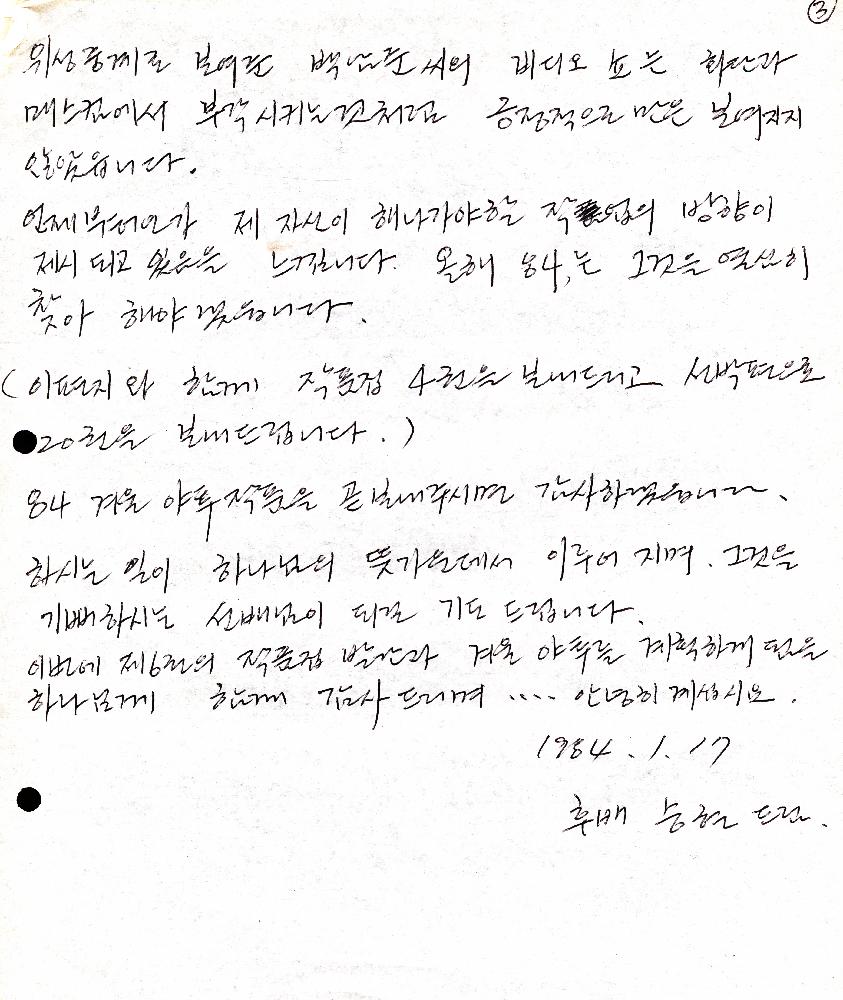 ③
위성중계로 보여준 백남준씨의 비디오 쇼는 화단과
매스컴에서 부각시키는것처럼 긍정적으로 만은 보여지지
않았읍니다.
언제부터인가 제 자신이 해나가야할 작업의 방향이
제시 되고 있음을 느낍니다. 올해 84,는 그것을 열심히
찾아 해야겠읍니다.
(이편지와 함께 작품집 4권을 보내드리고 선박편으로
20권을 보내드립니다.)
84 겨울 야투작품을 곧보내주시면 감사하겠읍니다.
하시는 일이 하나님의 뜻가운데서 이루어 지며. 그것을
기뻐하시는 선배님이 되길 기도 드립니다.
이번에 제6권의 작품집 발간과 겨울 야투를 계획하게 된것을
하나님께 함께 감사드리며 .... 안녕히 계십시요.
1984. 1. 17
후배 승현 드림.